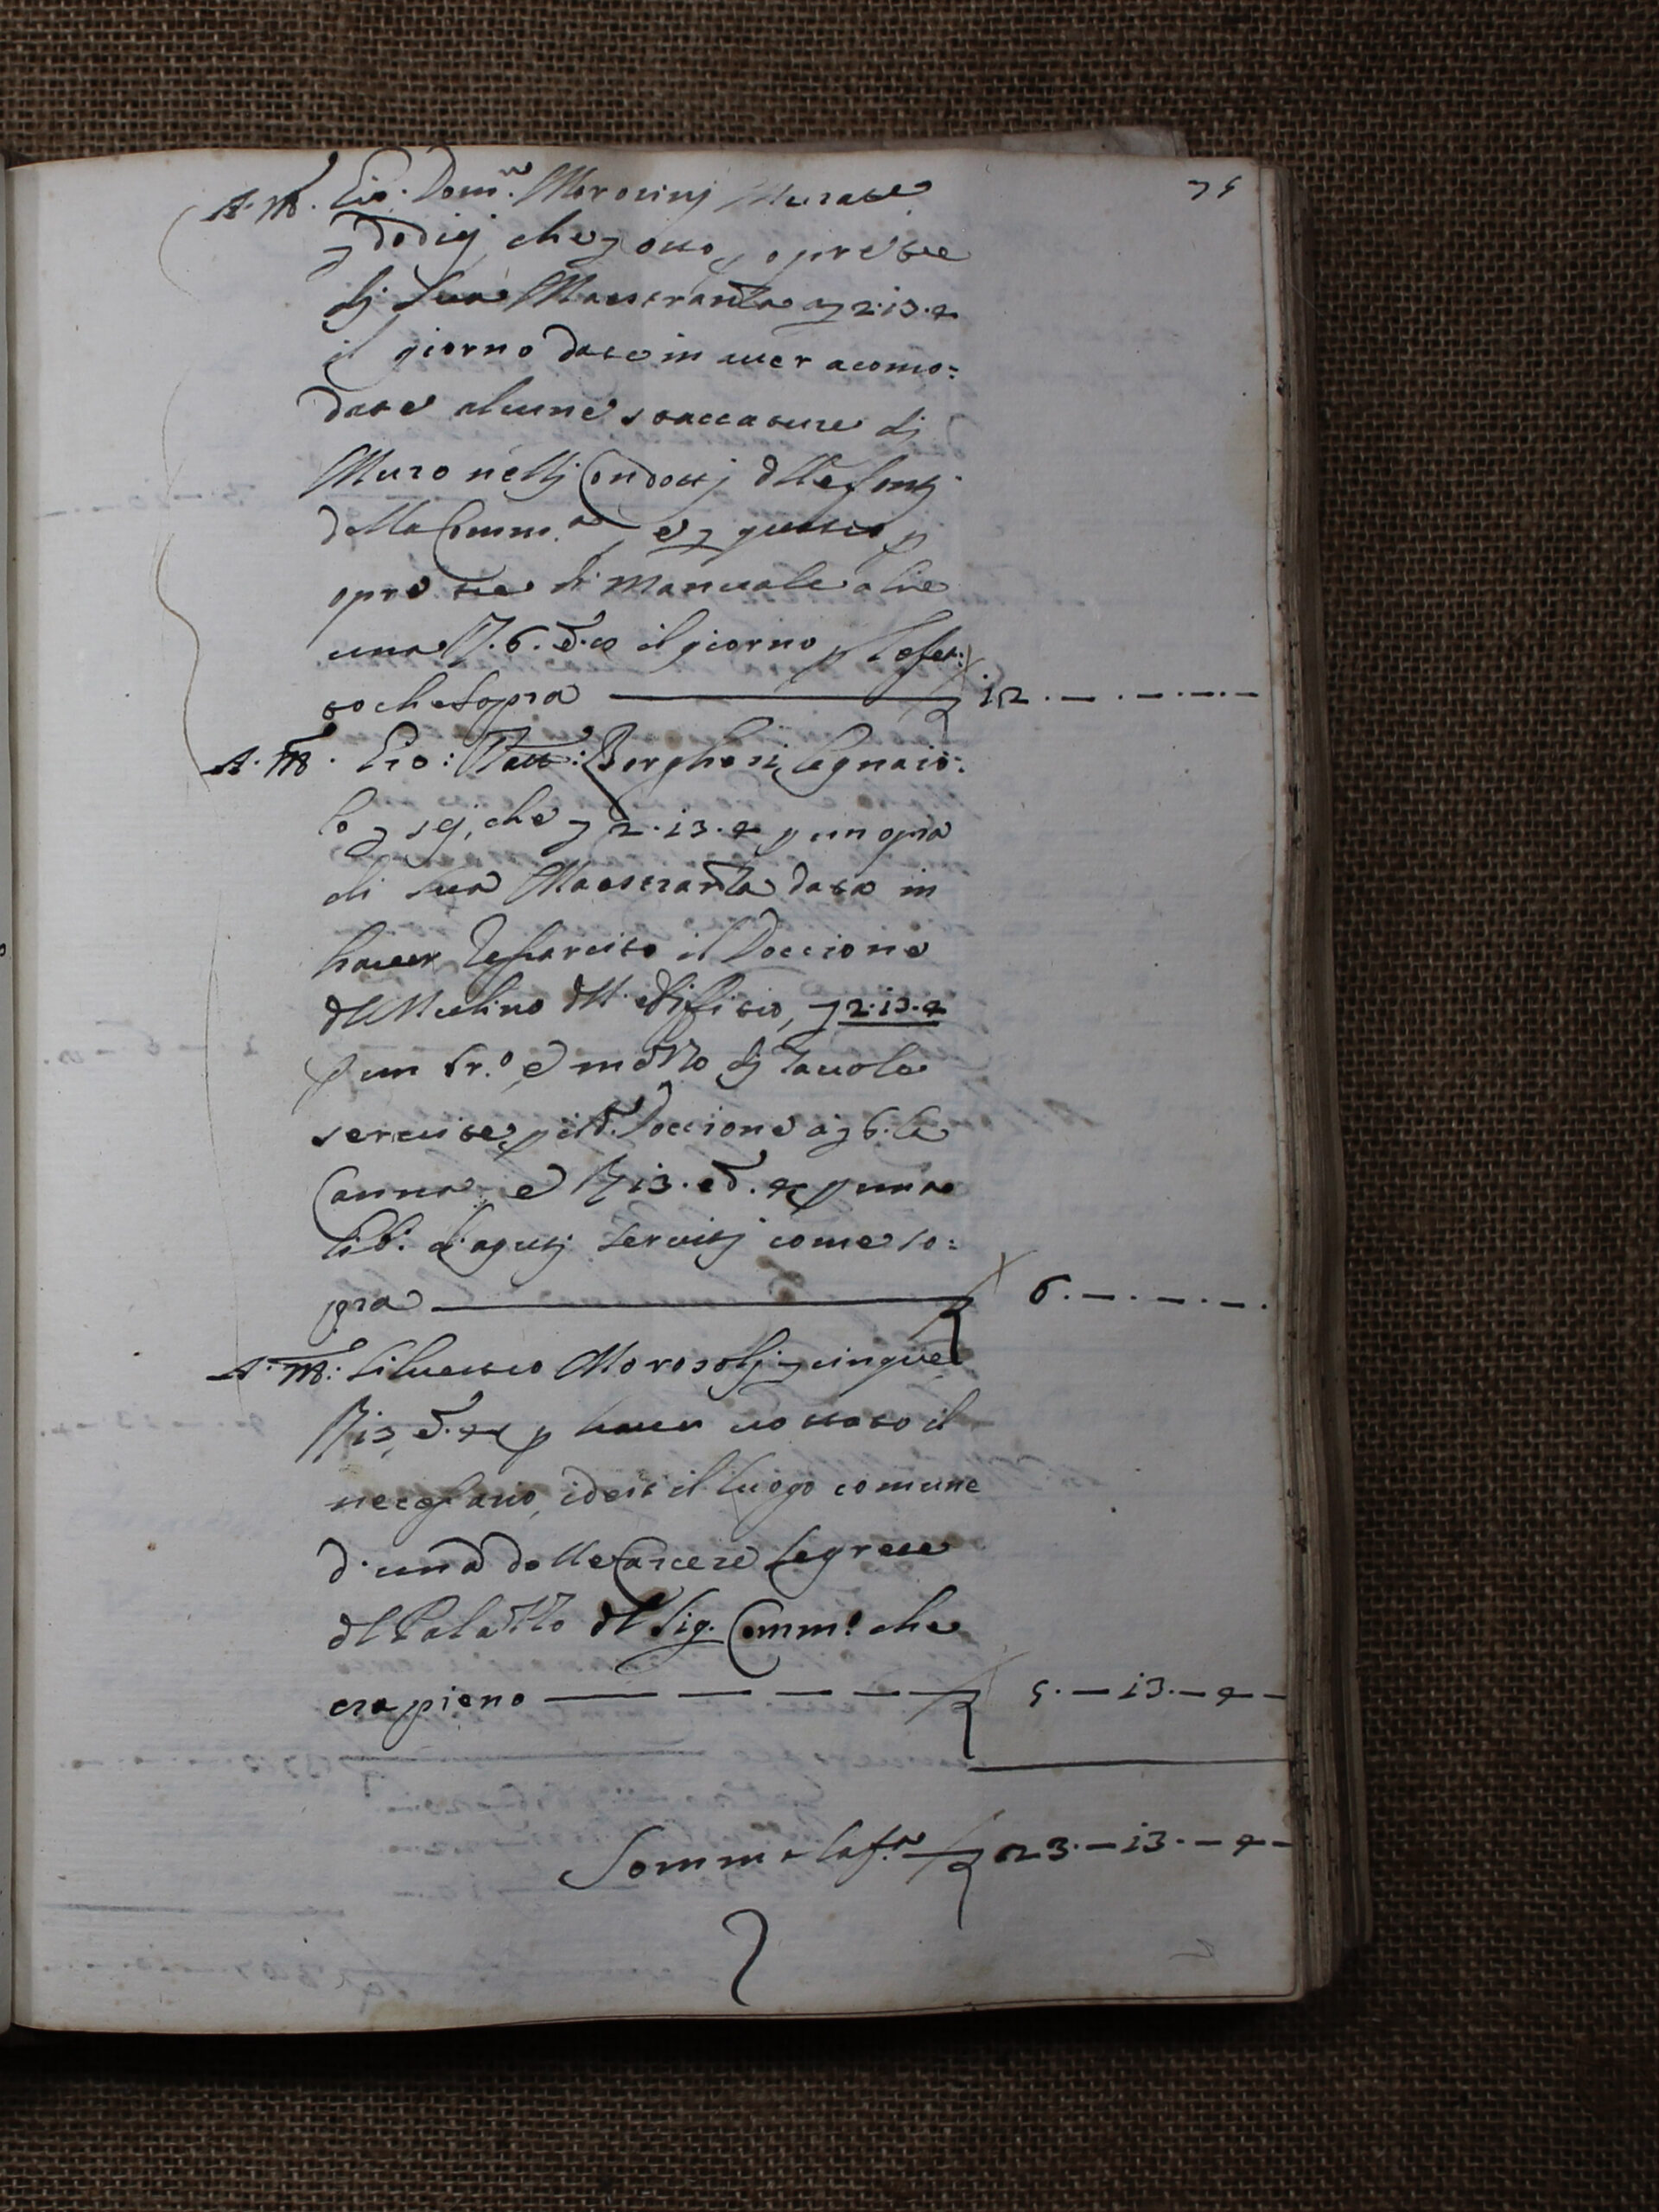 75
A. M. Gio: Dom.co Morosinj Murat.e
£ dodicj, che £ otto p opre tre
dj sua Maestranza a £ 2.13.4
il giorno date in aver acomo:
date alcune staccature dj
Muro nellj Condottj delle fontj
della Comm.a, e £ quattro p
opre tre di Manuale a lire
una S. 6. d. 8 il giorno p l'effet:
to che sopra £ 12.—.—.—
A. M. Gio: Batt: Borghesi Legnaio:
lo £ sej, che £ 2.13.4 p un opra
di sua Maestranza data in
haver resarcito il Doccione
del Mulino dell'edifitio, £ 2.13.4
p un br.o e mezzo dj tavole
servite p il d. Doccione a £ 6. la
Canna, e S 13. e d. 4 p una
lib: di agutj servitj come so:
pra £ 6.—.—.—.
A. M: Silvestro Morosolj £ cinque
S 13, d. 4 p haver votato il
necessario, idest il luogo comune
d'una delle Carcere segrete
del Palazzo del Sig. Comm.o che
era pieno £ 5.—13.—4—
Somma £ 23.—13.—4—